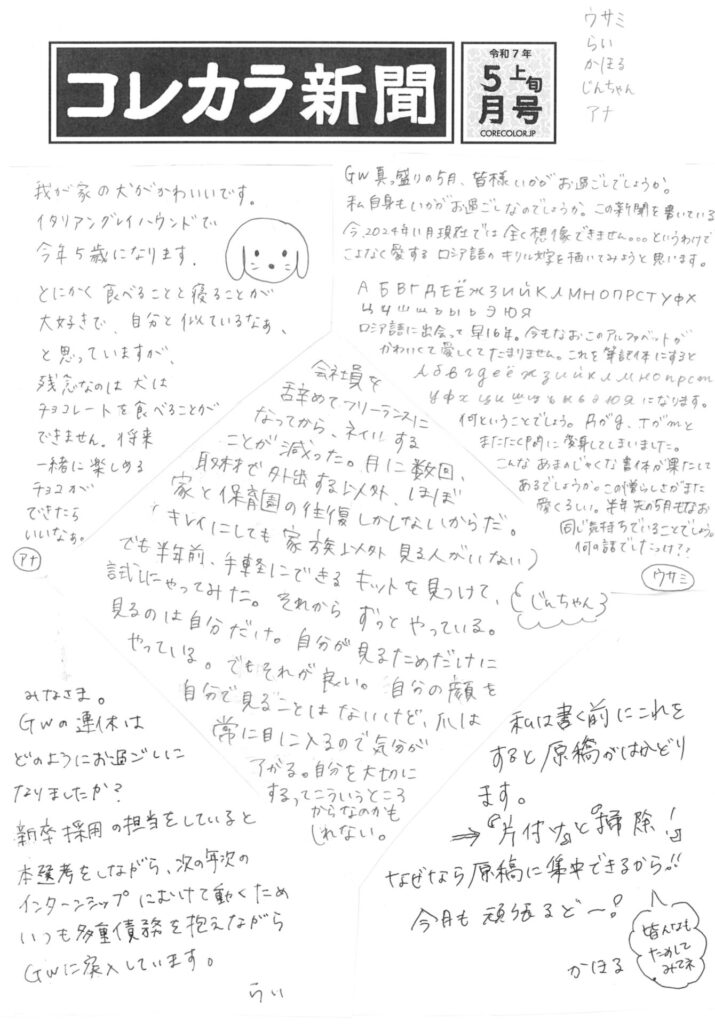 ウサミ
らい
かほる
じんちゃん
アナ
コレカラ新聞
令和7年
5月
上旬
号
CORECOLOR.JP
我が家の犬がかわいいです。
イタリアングレイハウンドで
今年5歳になります。
とにかく食べることと寝ることが
大好きで、自分と似ているなぁ、
と思っていますが、
残念なのは犬は
チョコレートを食べることが
できません。将来
一緒に楽しめる
チョコが
できたら
いいなぁ。
アナ
GW真っ盛りの5月、皆様いかがお過ごしでしょうか。
私自身もいかがお過ごしなのでしょうか。この新聞を書いている
今、2024年11月現在では全く想像できません。。。というわけで
こよなく愛するロシア語のキリル文字を描いてみようと思います。
А Б В Г Д Е Ё Ж З И Й К Л М Н О П Р С Т У Ф Х
Ц Ч Ш Щ Ъ Ы Ь Э Ю Я
ロシア語に出会って早16年。今もなおこのアルファベットが
かわいくて愛しくてたまりません。これを筆記体にすると
А б в г д е ё ж з и й к л м н о п р с т
у ф х ц ч ш щ ъ ы ь э ю я になります。
何ということでしょう。Дがg、Тがmと
またたく間に変身してしまいました。
こんなあまのじゃくな書体が果たして
あるでしょうか。この憎らしさがまた
愛くるしい。半年先の5月もなお
同じ気持ちでいることでしょう。
何の話でしたっけ??
ウサミ
会社員を
辞めてフリーランスに
なってから、ネイルする
ことが減った。月に数回、
取材で外出する以外、ほぼ
家と保育園の往復しかしないからだ。
(キレイにしても家族以外見る人がいない)
でも半年前、手軽にできるキットを見つけて、
試しにやってみた。それからずっとやっている。
見るのは自分だけ。自分が見るためだけに
やっている。でもそれが良い。自分の顔を
自分で見ることはないけど、爪は
常に目に入るので気分が
アガる。自分を大切に
するってこういうところ
からなのかも
しれない。
じんちゃん
みなさま。
GWの連休は
どのようにお過ごしに
なりましたか?
新卒採用の担当をしていると
本選考をしながら、次の年次の
インターンシップにむけて動くため
いつも多重債務を抱えながら
GWに突入しています。
らい
私は書く前にこれを
すると原稿がはかどり
ます。
⇒『片付け』と『掃除!』
なぜなら原稿に集中できるから!!
今月も頑張るど〜!
かほる
皆んなも
ためして
みてネ